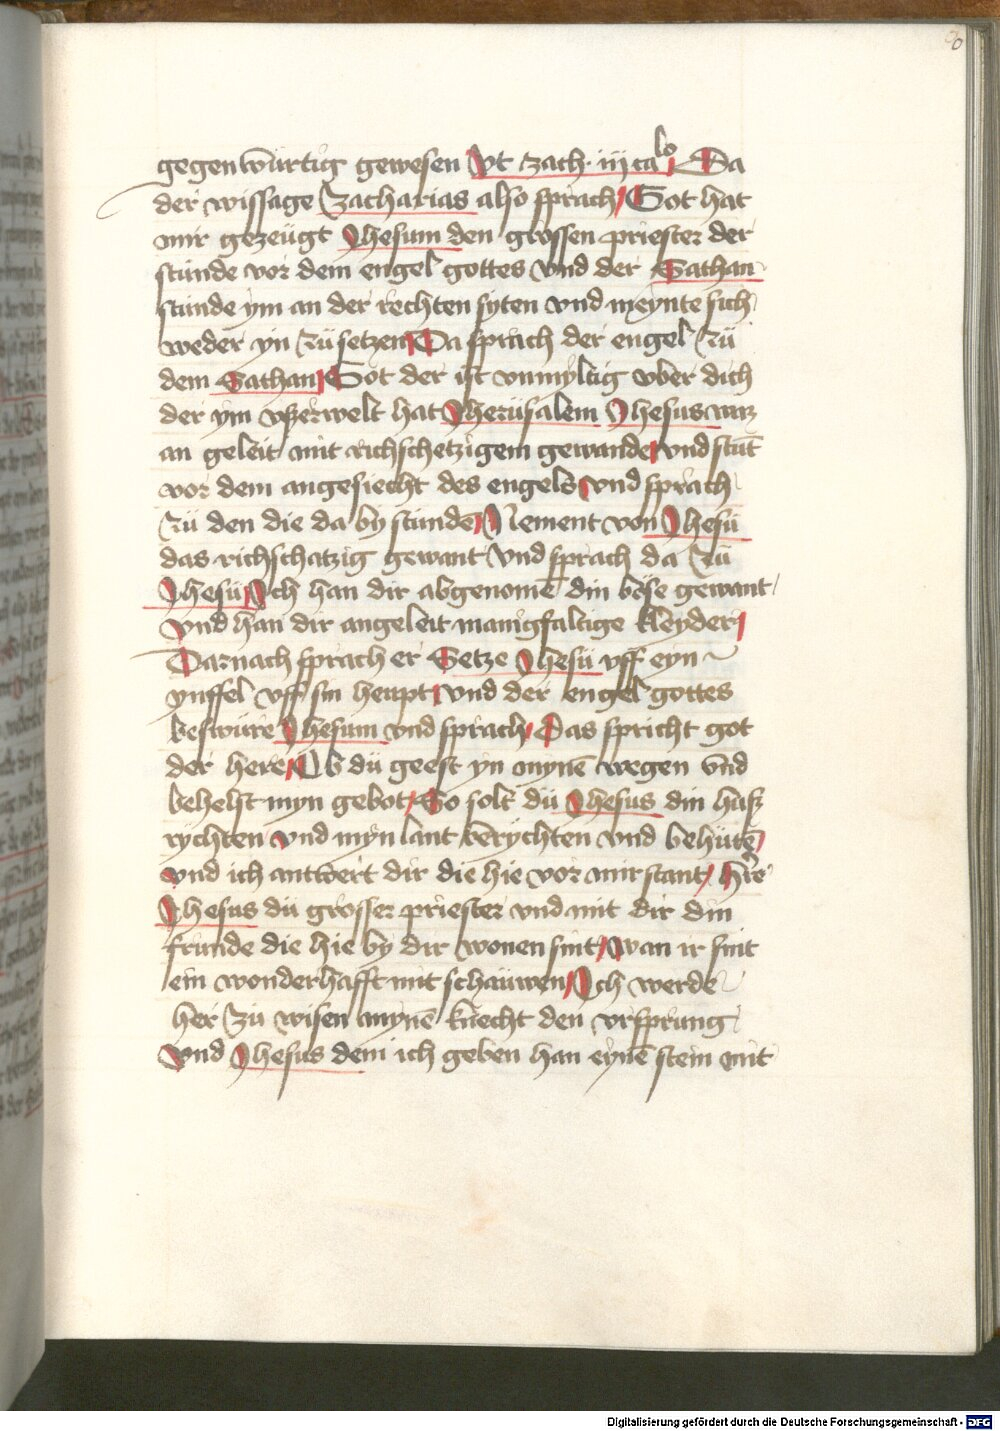 20
gegenwürtig gewesen Vt zach. iij calo Da
der wissage Zacharias also sprach / Got hat
mir gezeügt Jhesum den grossen priester der
stünde vor dem engel gottes vnd der Sathan
stünde ym an der rechten syten vnd meynte sich
weder yn zü setzen Da sprach der engel zü
dem Sathan / Got der ist vnmyltig vber dich
der ym vßerwelt hat Jherüsalem Jhesus waz
an geleit mit richschetzigem gewande / vnd stüt
vor dem angesiecht des engels / vnd sprach
zü den die da by stünde / Nement von Jhesü
das richschatzig gewant vnd sprach da zü
Jhesü / Ich han dir abgenomē din böse gewant
vnd han dir angeleit manigfaltige kleyder /
Darnach sprach er Setze Jhesü vff eyn
ynffel vff sin heupt / vnd der engel gottes
beswüre Jhesum vnd sprach / Das spricht got
der here / Ob dü geest yn mynē wegen vnd
behelst myn gebot / So solt dü Jhesus din huß
rychten vnd myn lant berychten vnd behütē /
vnd ich antwert dir die hie vor mir stant / Here
Jhesus dü grosser priester vnd mit dir din
fründe die hie by dir wonen sint / wan ir sint
ein wonderhafft mit schäuwen / Ich werde
her zü wisen mynē knecht den vrsprung
vnd Jhesus dem ich geben han eynē stein mit
Digitalisierung gefördert durch die Deutsche Forschungsgemeinschaft - DFG